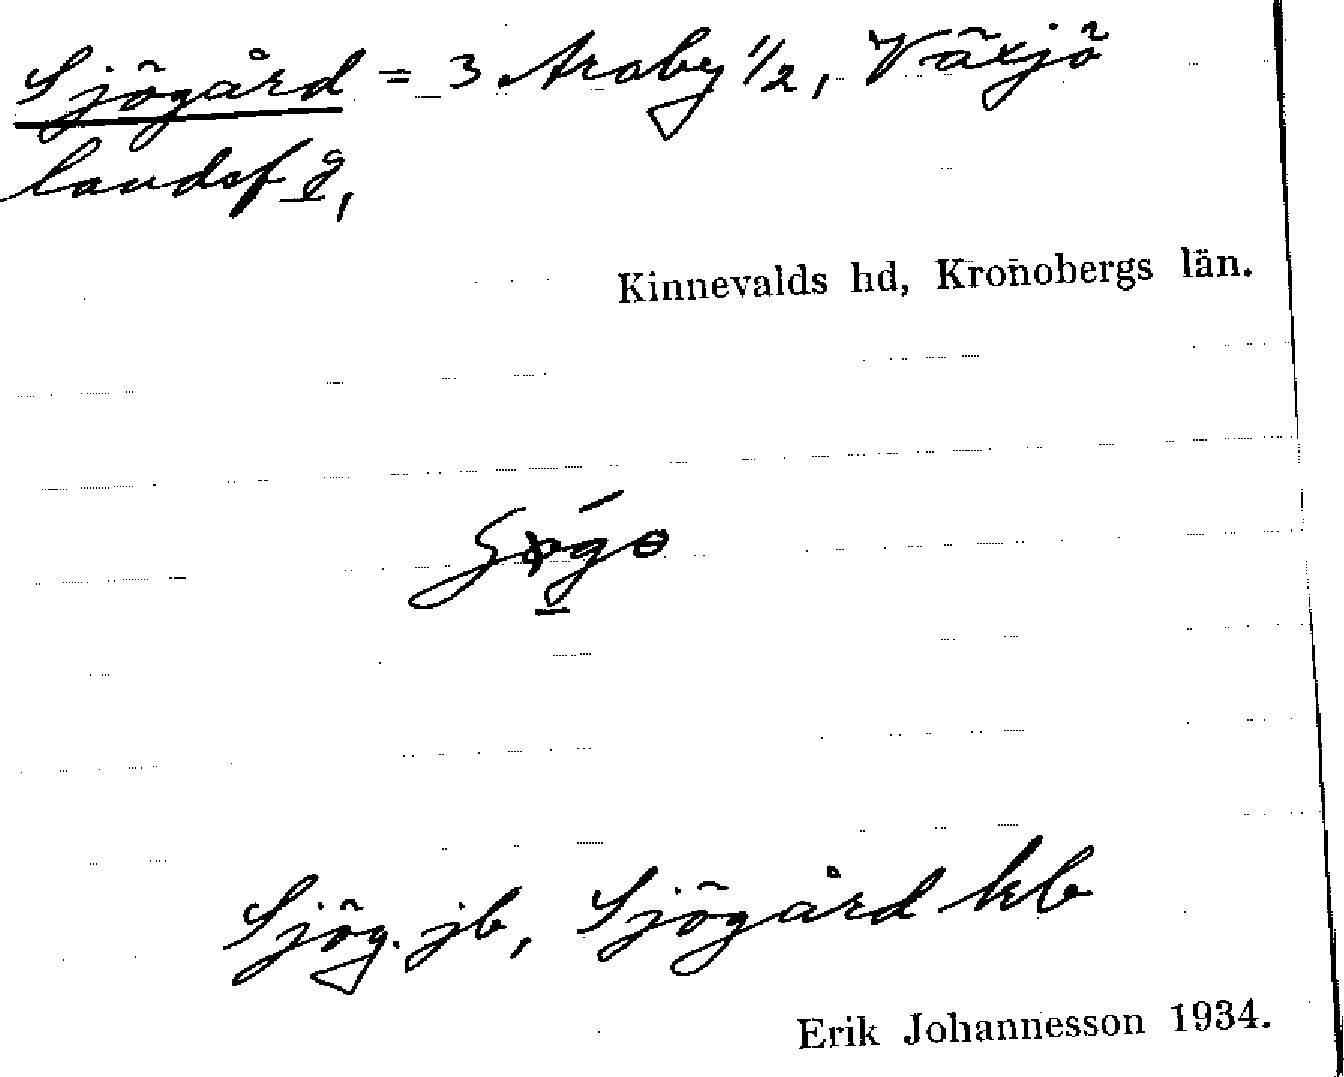 Sjögård = 3 Araby 1/2, Växjö
landsf g,
Kinnevalds hd, Kronobergs län.
Sjög. jb, Sjögård kb
Erik Johannesson 1934.